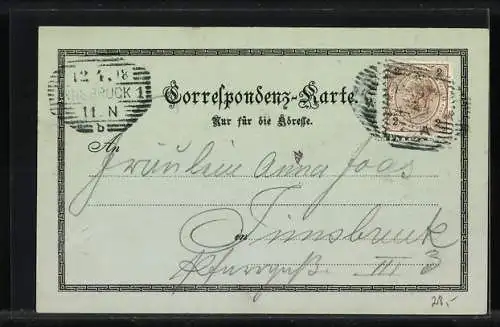 12.4.98
INNSBRUCK 1
11.N
b
Correspondenz-Karte.
Nur für die Adresse.
An
Fräulein Anna Joas
in Innsbruck
III 3
28,-